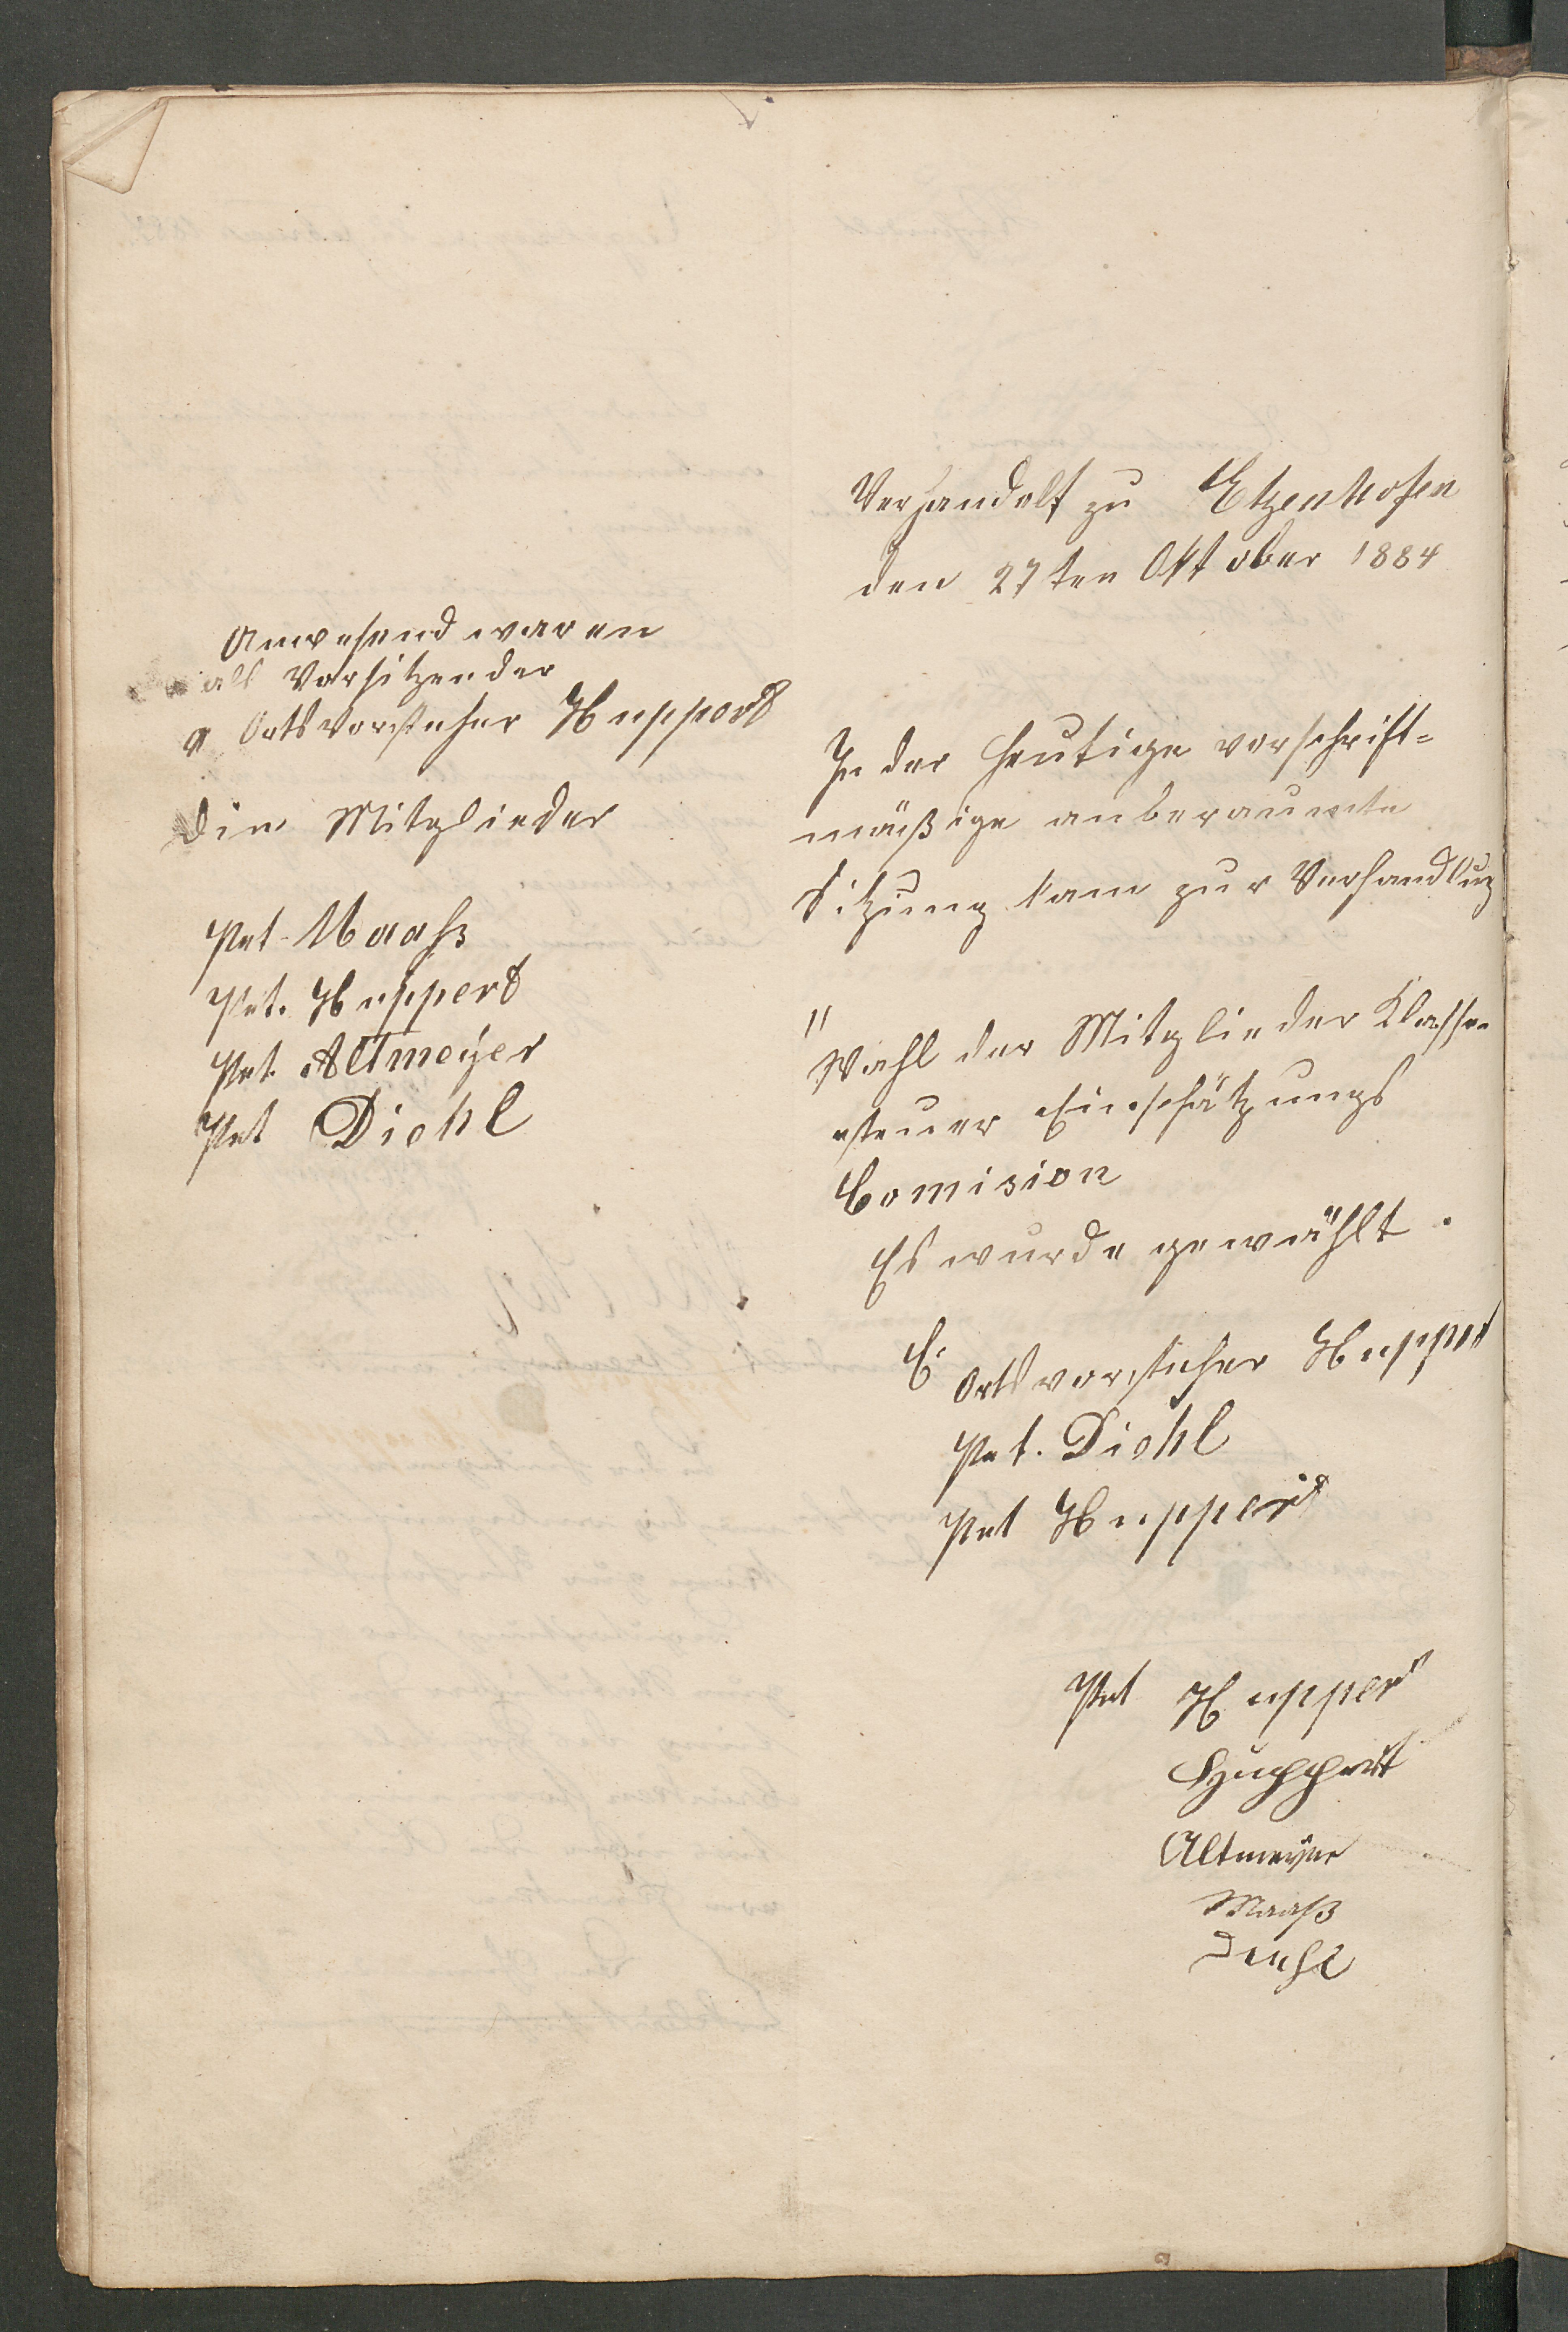 Verhandelt zu Etzenhofen
den 27ten Oktober 1884
Anwesend waren
als Vorsitzender
Ortsvorsteher Huppert
Die Mitglieder
Pet. Maaß
Pet. Huppert
Pet. Altmeÿer
Pet Diehl
In der heutige vorschrift=
mäßige anberaumte
Sitzung kam zur Verhandlung
"
Wahl der Mitglieder Klassen
steuer Einschätzungs
Comision
Es wurde gewählt.
Ortsvorsteher Huppert
Pet. Diehl
Pet Huppert
Pet Huppert
Huppert
Altmeyer
Maaß
Diehl